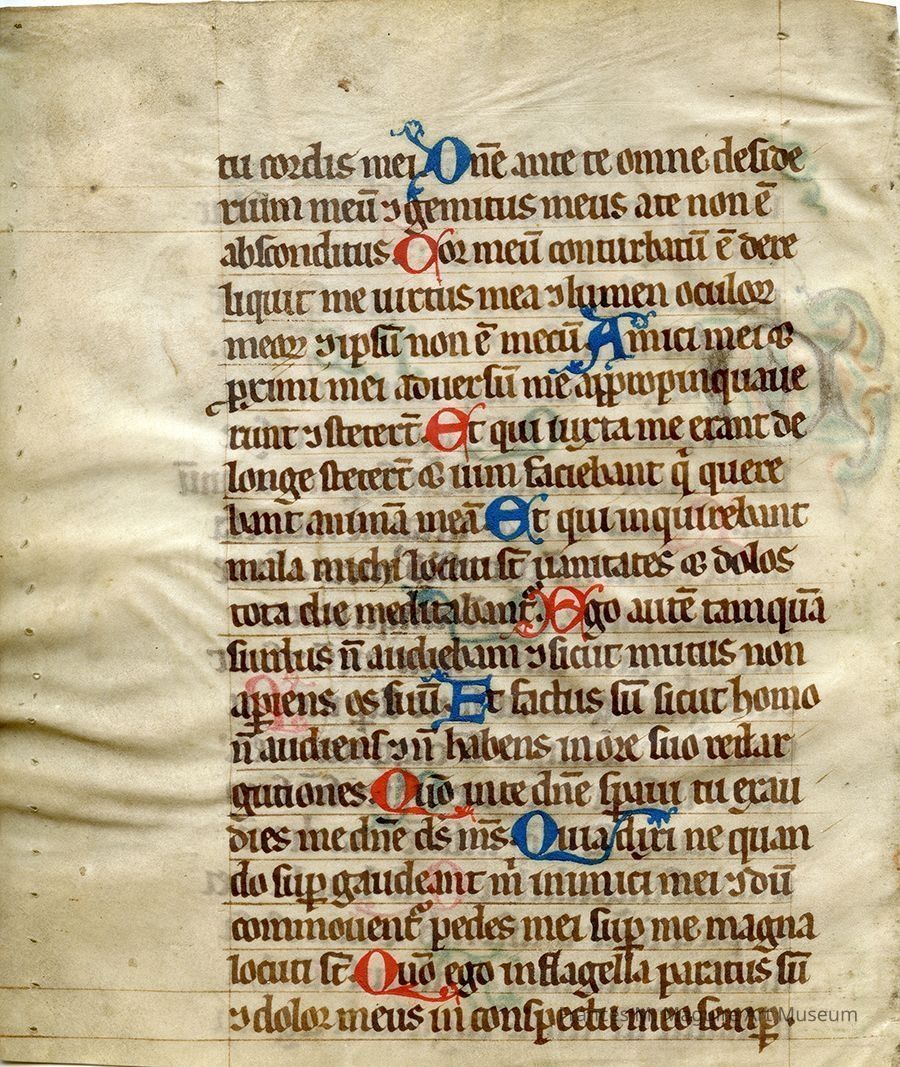 tu cordis mei Dn̄e ante te omne deside
rium meū ⁊ gemitus meus a te non ē
absconditus Cor meū conturbatū ē dere
liquit me uirtus mea ⁊ lumen oculoꝝ
meoꝝ ⁊ ipsū non ē mecū Amici mei &
ꝓximi mei aduersū me aꝓpropinquaue
runt ⁊ steterūt Et qui iuxta me erant de
longe steterūt & uim faciebant qͥ quere
bant animā meā Et qui inquirebant
mala michi locuti sūt uanitates & dolos
tota die meditabant᷑ Ego autē tamquā
surdus n̄ audiebam ⁊ sicut mutus non
aꝑiens os suū Et factus sū sicut homo
n̄ audiens ⁊ n̄ habens in ore suo redar
gutiones Quō in te dn̄e sꝑaui tu exau
dies me dn̄e ds̄ ms̄ Quia dixi ne quan
do suꝑ gaudeant mͥ inimici mei ⁊ dū
commouent᷑ pedes mei suꝑ me magna
locuti st̄ Quō ego in flagella paratus sū
⁊ dolor meus in conspectu meo semꝑ.
Frances M. Maguire Art Museum